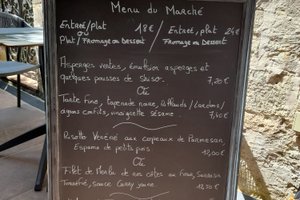 Menu du Marché
Entrée/Plat 18€ / Entrée, plat 24€
ou
Plat/Fromage ou Dessert / Fromage ou Dessert
Asperges vertes, émulsion asperges et
quelques pousses de Shiso. 7,20€
Ou
Tarte fine, tapenade noire,
confits, vinaigrette sésame. 7,40€
Ou
Risotto Vénéré aux copeaux de Parmesan
Espuma de petits pois 12,00€
Ou
Filet de Merlu de nos côtes au four,
sauce Curry jaune. 12,50€